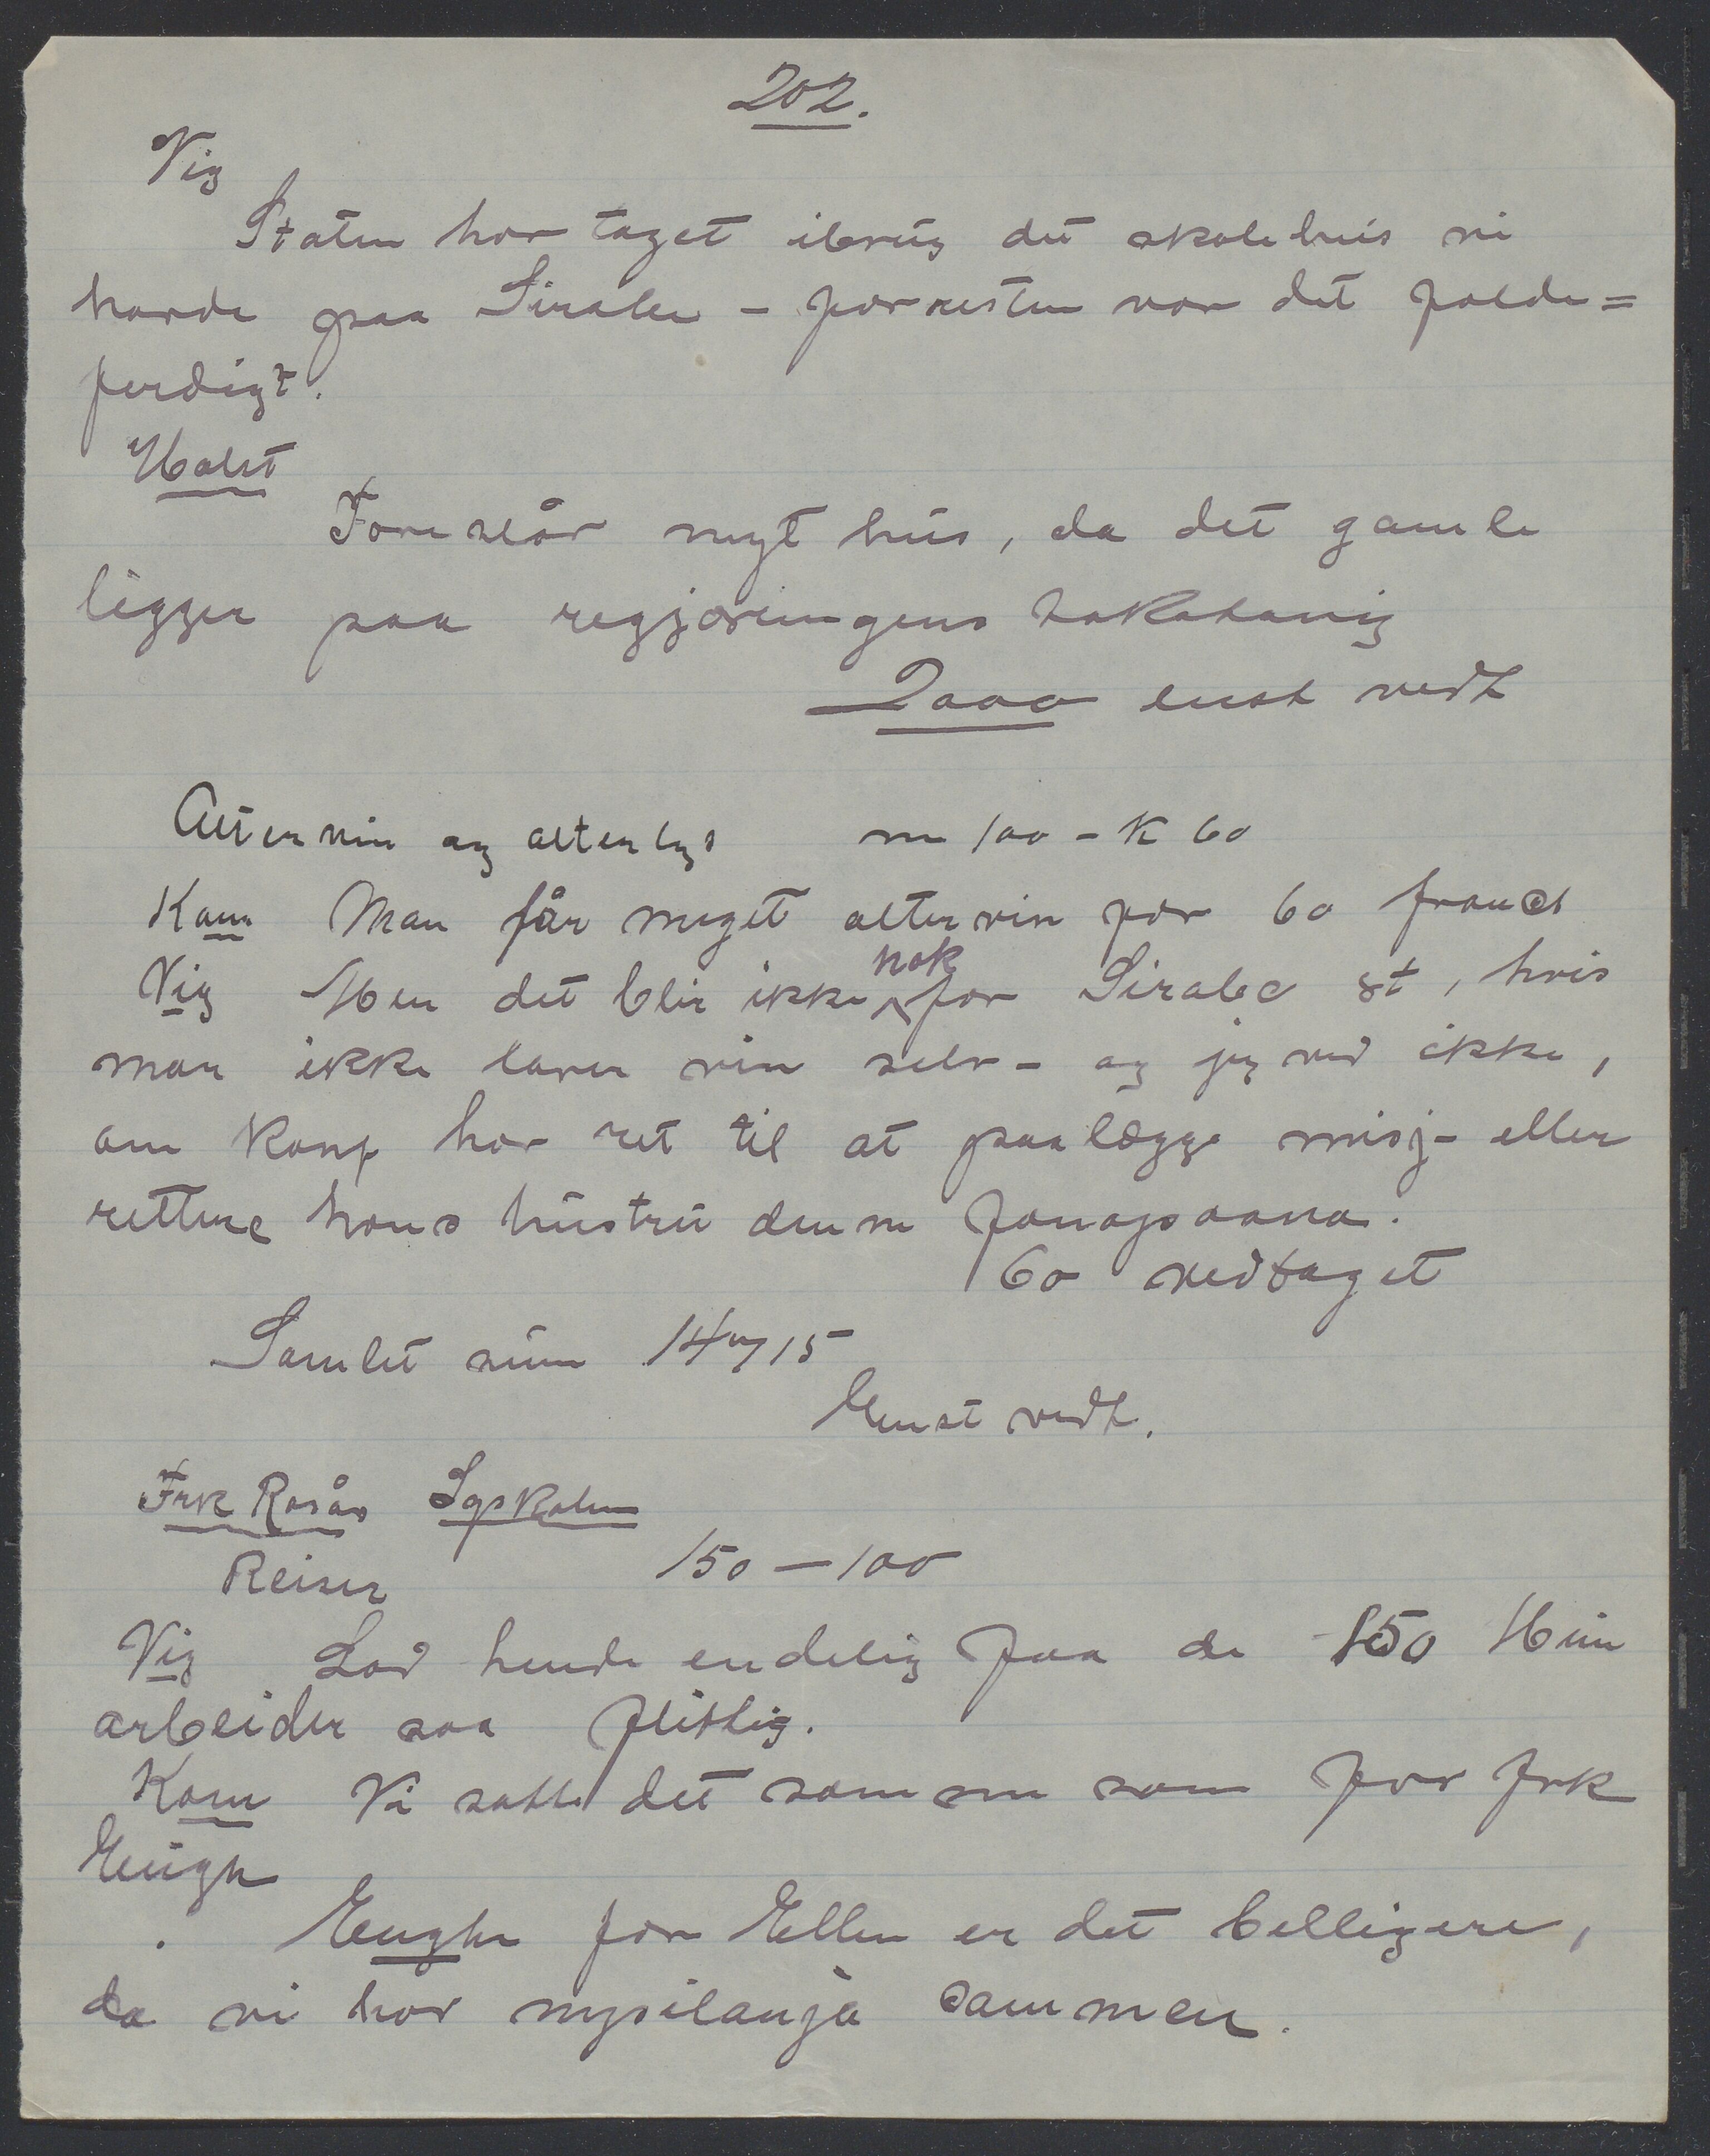 202.
Vig
Staten har taget ibrug det skolehus vi
havde paa Sirabe - forresten var det falde=
ferdigt.
Holst
Foreslår nyt hus, da det gamle
ligger paa regjeringens
2000 enst vedt
Altervin og alterlys m 100 - K 60
Kom Man får meget altervin for 60 francs
Vig Men det blir ikke nok for Sirabe st, hvis
man ikke laver vin selv - og jeg ved ikke,
om Konf har ret til at paalægge misj- eller
rettere hans hustru denne fanapoana.
60 vedtaget
Samlet sum 14715
Enst vedt.
Frk Rosås Syskolen
Reiser 150 - 100
Vig Lad hende endelig faa de 150 Hun
arbeider saa flittig.
Kom Vi satte det samme som for frk
Eugh
Engh for Ellen er det billigere,
da vi har mpilanja sammen.